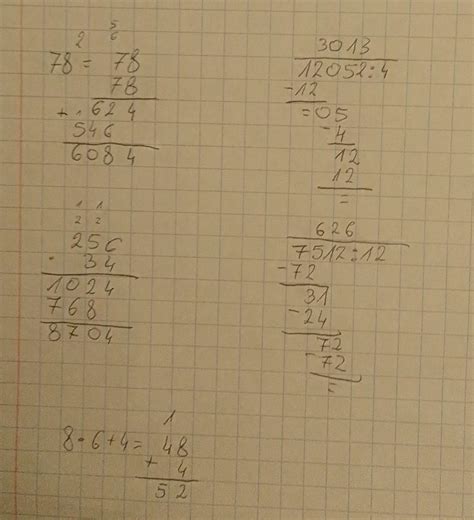 5
2 6
78 = 78
78
+ 1624
546
6084
1 1
2 2
256
· 34
1024
768
8704
1
8 · 6 + 4 = 48
+ 4
52
3013
12052:4
-12
=05
-4
12
12
=
626
7512:12
-72
31
-24
72
-72
=